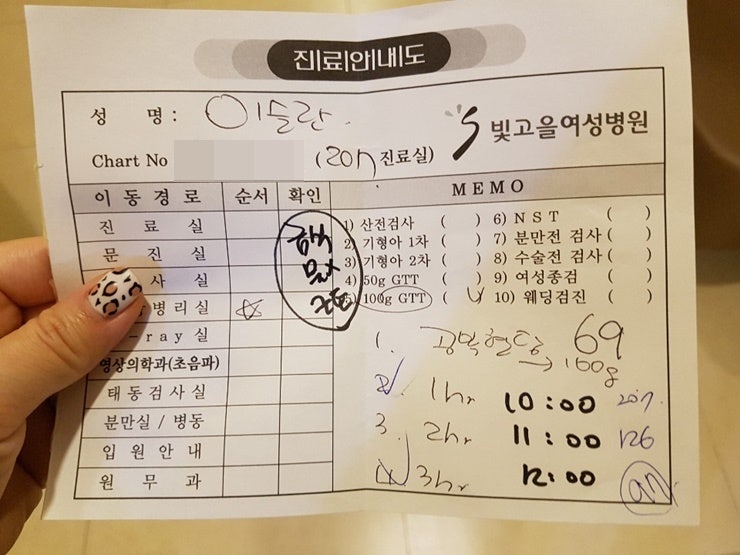 진료안내도
성 명 : 이슬란
빛고을여성병원
Chart No (207 진료실)
이 동 경 로 순서 확인 MEMO
진 료 실
문 진 실
사 실
병리실
-ray 실
영상의학과(초음파)
태동검사실
분만실 / 병동
입 원 안 내
원 무 과
금식
물X
1) 산전검사 ( ) 6) N S T ( )
2) 기형아 1차 ( ) 7) 분만전 검사 ( )
3) 기형아 2차 ( ) 8) 수술전 검사 ( )
4) 50g GTT ( ) 9) 여성종검 ( )
5) 100g GTT (V) 10) 웨딩검진 ( )
1. 공복혈당 69
→ 100g
2. 1hr 10:00 207
3. 2hr 11:00 126
4. 3hr 12:00